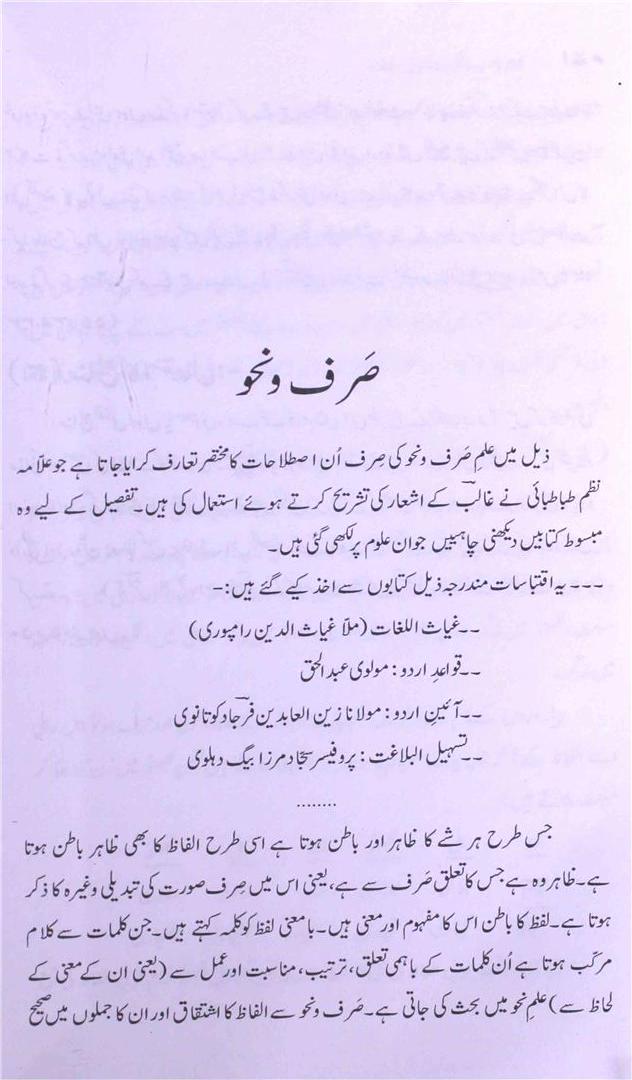 صَرف و نحو
ذیل میں علمِ صَرف ونحو کی صِرف اُن اصطلاحات کا مختصر تعارف کرایا جاتا ہے جو علاّمہ
نظم طباطبائی نے غالبؔ کے اشعار کی تشریح کرتے ہوئے استعمال کی ہیں۔ تفصیل کے لیے وہ
مبسوط کتابیں دیکھنی چاہییں جو ان علوم پر لکھی گئی ہیں۔
یہ اقتباسات مندرجہ ذیل کتابوں سے اخذ کیے گئے ہیں:-
۔۔غیاث اللغات (ملاّ غیاث الدین رامپوری)
۔۔قواعدِ اردو: مولوی عبدالحق
۔۔آئینِ اردو: مولانا زین العابدین فرجادؔ کوتانوی
۔۔تسہیل البلاغت: پروفیسر سجّاد مرزا بیگ دہلوی
........
جس طرح ہر شے کا ظاہر اور باطن ہوتا ہے اسی طرح الفاظ کا بھی ظاہر باطن ہوتا
ہے۔ ظاہر وہ ہے جس کا تعلق صَرف سے ہے، یعنی اس میں صِرف صورت کی تبدیلی وغیرہ کا ذکر
ہوتا ہے۔ لفظ کا باطن اس کا مفہوم اور معنی ہیں۔ بامعنی لفظ کو کلمہ کہتے ہیں۔ جن کلمات سے کلام
مرکّب ہوتا ہے اُن کلمات کے باہمی تعلق، ترتیب، مناسبت اور عمل سے (یعنی ان کے معنی کے
لحاظ سے) علمِ نحو میں بحث کی جاتی ہے۔ صَرف ونحو سے الفاظ کا اشتقاق اور ان کا جملوں میں صحیح